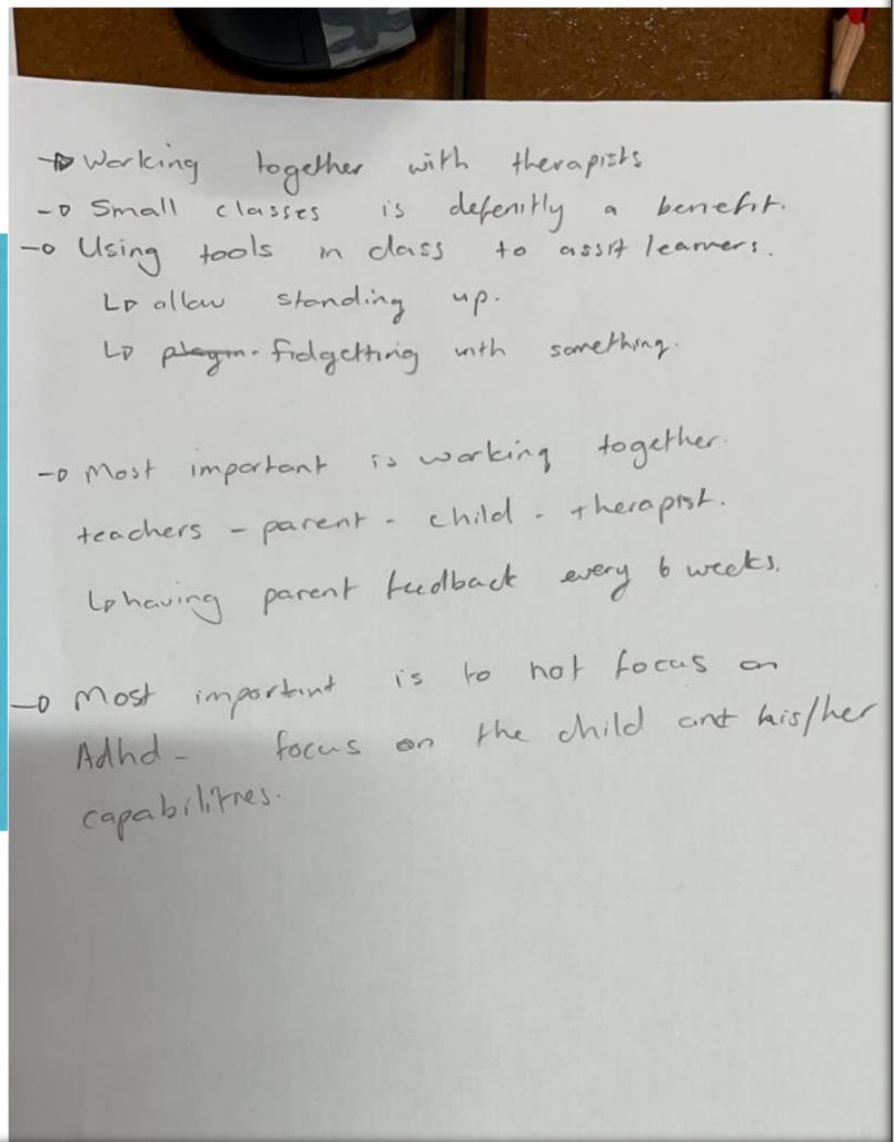 → Working together with therapists
→ Small classes is defenitly a benefit.
→ Using tools in class to assit learners.
↳ allow standing up.
↳ fidgetting with something.
→ Most important is working together.
teachers - parent - child - therapist.
↳ having parent feedback every 6 weeks.
→ Most important is to not focus on
Adhd - focus on the child and his/her
capabilities.